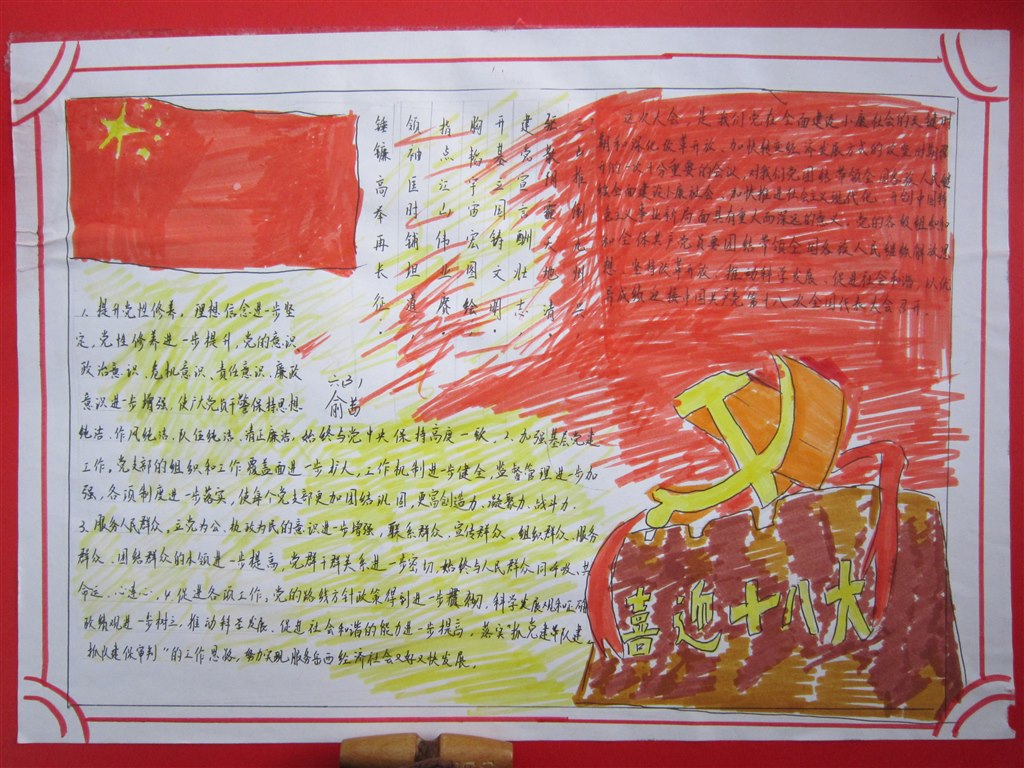 三山推倒九州
天地清
建党宣言酬壮志，
开基立国铸文明。
胸韬宇宙宏图绘，
指点江山伟业
领袖匡时铺坦道，
锤镰高举再长征。
这次大会，是我们党在全面建设小康社会的关键时
期和深化改革开放、加快转变经济发展方式的攻坚时期召
开的一次十分重要的会议，对我们党团结带领全国各族人民继
续全面建设小康社会、加快推进社会主义现代化、开创中国特
色主义事业新局面具有重大而深远的意义。党的各级组织和
和全体共产党员要团结带领全国各族人民继续解放思
想、坚持改革开放、推动科学发展、促进社会和谐，以优
异成绩迎接中国共产党第十八次全国代表大会召开.
1、提升党性修养。理想信念进一步坚
定，党性修养进一步提升，党的意识
政治意识、危机意识、责任意识、廉政
意识进一步增强，使广大党员干警保持思想
纯洁、作风纯洁、队伍纯洁、清正廉洁，始终与党中央保持高度一致。2、加强基层党建
工作。党支部的组织和工作覆盖面进一步扩人，工作机制进一步健全，监督管理进一步加
强，各项制度进一步落实，使每个党支部更加团结巩固，更富创造力、凝聚力、战斗力.
3、服务人民群众。立党为公、执政为民的意识进一步增强，联系群众、宣传群众、组织群众、服务
群众、团结群众的本领进一步提高，党群干群关系进一步密切，始终与人民群众同呼吸、共
命运、心连心。4、促进各项工作。党的路线方针政策得到进一步贯彻，科学发展观和正确
政绩观进一步树立，推动科学发展、促进社会和谐的能力进一步提高，落实"抓党建带队建、
抓队建促审判"的工作思路，努力实现服务岳西经济社会又好又快发展。
六(3)
俞茜
喜迎十八大